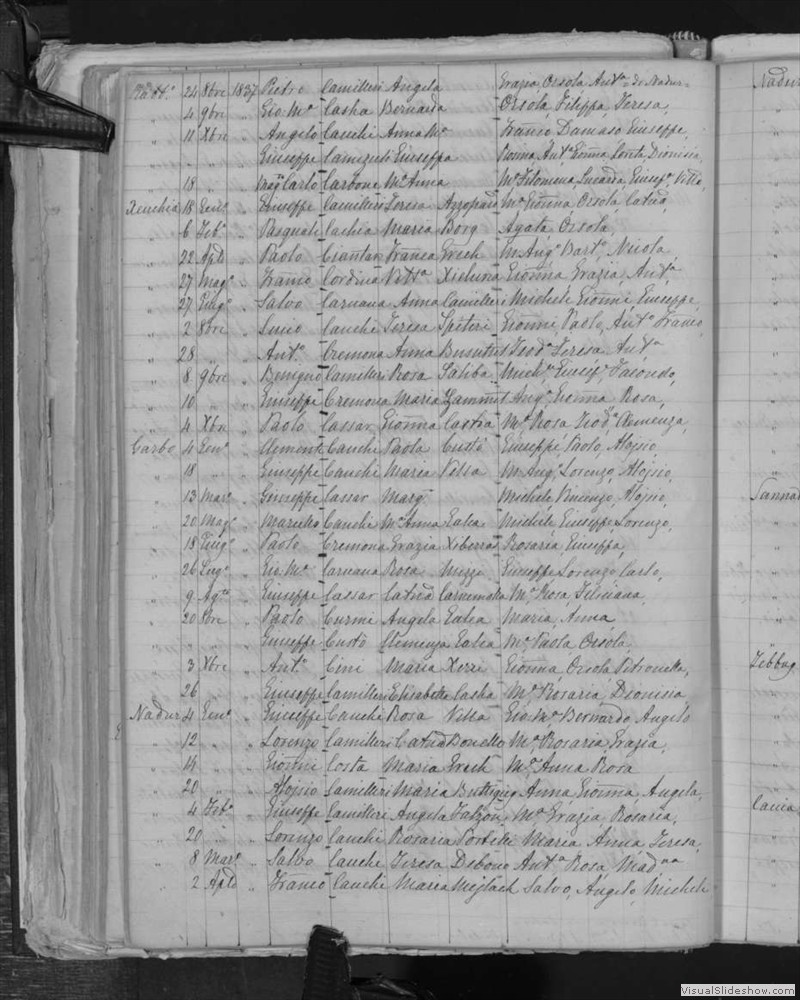 24 8bre 1837 Pietro Camilleri Angela Grazia, Orsola, Ant.a di Nadur
4 9bre " Gio. M.a Casha Bernarda Orsola, Filippa, Teresa,
11 Xbre " Angelo Cauchi Anna M.a Franco Damaso Giuseppe,
" " " Giuseppe Camizuli Giuseppa Ant.a Gionna, Loreta, Dionisia,
18 " Carlo Carbone M.a Anna M.a Filomena, Lucarda, Giusep.a, Vitto,
Xeuchia 18 Gen.o " Giuseppe Camilleri Teresa Azzopardi M.a Gionna Orsola Catria,
" 6 Feb.o " Pasquale Cachia Maria Borg Agata Orsola,
" 22 Aple " Paolo Ciantar Franca Grech M. Ang.o Bart.o, Nicola,
" 27 Mag.o " Franco Cordina Vitt.a Xicluna Gionna, Grazia, Ant.a,
" 27 Giug.o " Salvo Caruana Anna Camilleri Michele Gionni Giuseppe,
" 2 8bre " Cauchi Teresa Spiteri Gionni, Paolo, Ant.o Franco,
" 28 " " Ant.o Cremona Anna Teod.a Teresa, Ant.a
" 8 9bre " Benigno Camilleri Rosa Saliba Mich.e, Giusep.e,
" 10 " " Giuseppe Cremona Maria Zammit Ang.a, Gionna Rosa,
" 4 Xbre " Paolo Cassar Gionna M.a Rosa Teod.a Clemenza,
Garbo 4 Gen.o " Clemente Cauchi Paola Custo Giuseppe, Paolo, Alojsio,
" 18 " " Giuseppe Cauchi Maria Vella M. Ang, Lorenzo, Alojsio,
" 13 Mar.o " Giuseppe Cassar Marg. Michele, Vincenzo, Alojsio,
" 20 Mag.o " Cauchi M.a Anna Galea Michele, Giuseppe, Lorenzo,
" 18 Giug.o " Paolo Cremona Grazia Xiberras Rosaria Giuseppa,
" 26 Lug.o " Gio. M.a Caruana Rosa Mizzi Giuseppe Lorenzo, Carlo,
" 9 Ag.to " Giuseppe Cassar Catria M.a Rosa,
" 20 8bre " Paolo Curmi Angela Galea Maria, Anna,
" " " Giuseppe Custo Clemenza Galea M.a Paola Orsola,
" 3 Xbre " Ant.o Cini Maria Xerri Gionna Orsola Petronella,
" 26 " Giuseppe Camilleri Elisabetta Casha M.a Rosaria, Dionisia
Nadur 4 Gen.o " Giuseppe Cauchi Rosa Vella Gio. M.a Bernardo Angelo
" 12 " " Lorenzo Camilleri Catria M.a, Rosaria Grazia,
" 14 " " Gionni Costa Maria Grech M.a Anna Rosa
" 20 " " Alojsio Camilleri Maria Buttigieg Anna, Gionna, Angela,
" 4 Feb.o " Giuseppe Camilleri Angela Falzon M.a Grazia, Rosaria,
" 20 " " Lorenzo Cauchi Rosaria Portelli Maria Anna Teresa,
" 8 Mar.o " Salvo Cauchi Teresa Debono Ant.a Rosa, Mad.na
" 2 Aple " Franco Cauchi Maria Mejlach Salvo, Angelo, Michele
Nadur
Sannat
Zebbug
VisualSlideshow.com